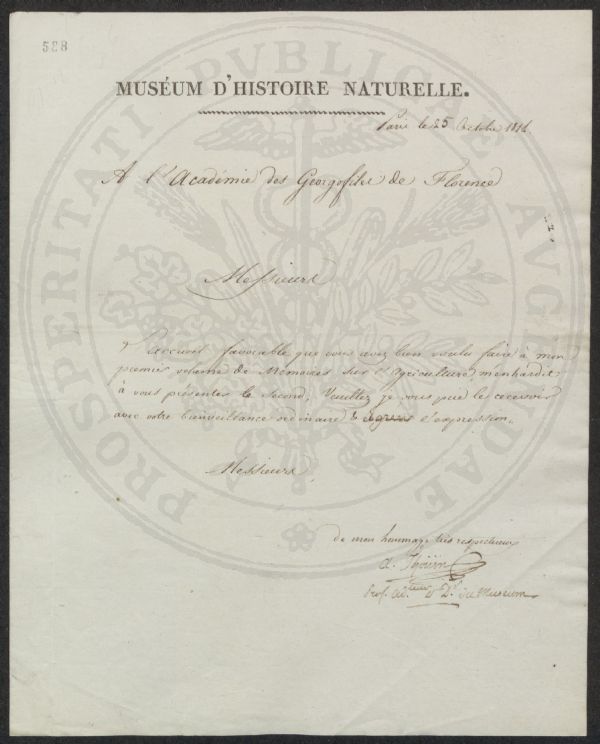 588
MUSÉUM D'HISTOIRE NATURELLE.
Paris le 25 Octobre
A l'Académie des Georgofiles de Florence
Messieurs
L'accueil favorable que vous avez bien voulu faire à mon
premier volume de Mémoires sur l'Agriculture, m'enhardit
à vous présenter le second. Veuillez je vous prie le recevoir
avec votre bienveillance ordinaire & l'expression,
Messieurs
de mon hommage très respectueux
A. Thoüin
Prof. ad.teur et D.r du Museum
PROSPERITATI PVBLICAE AVGENDAE